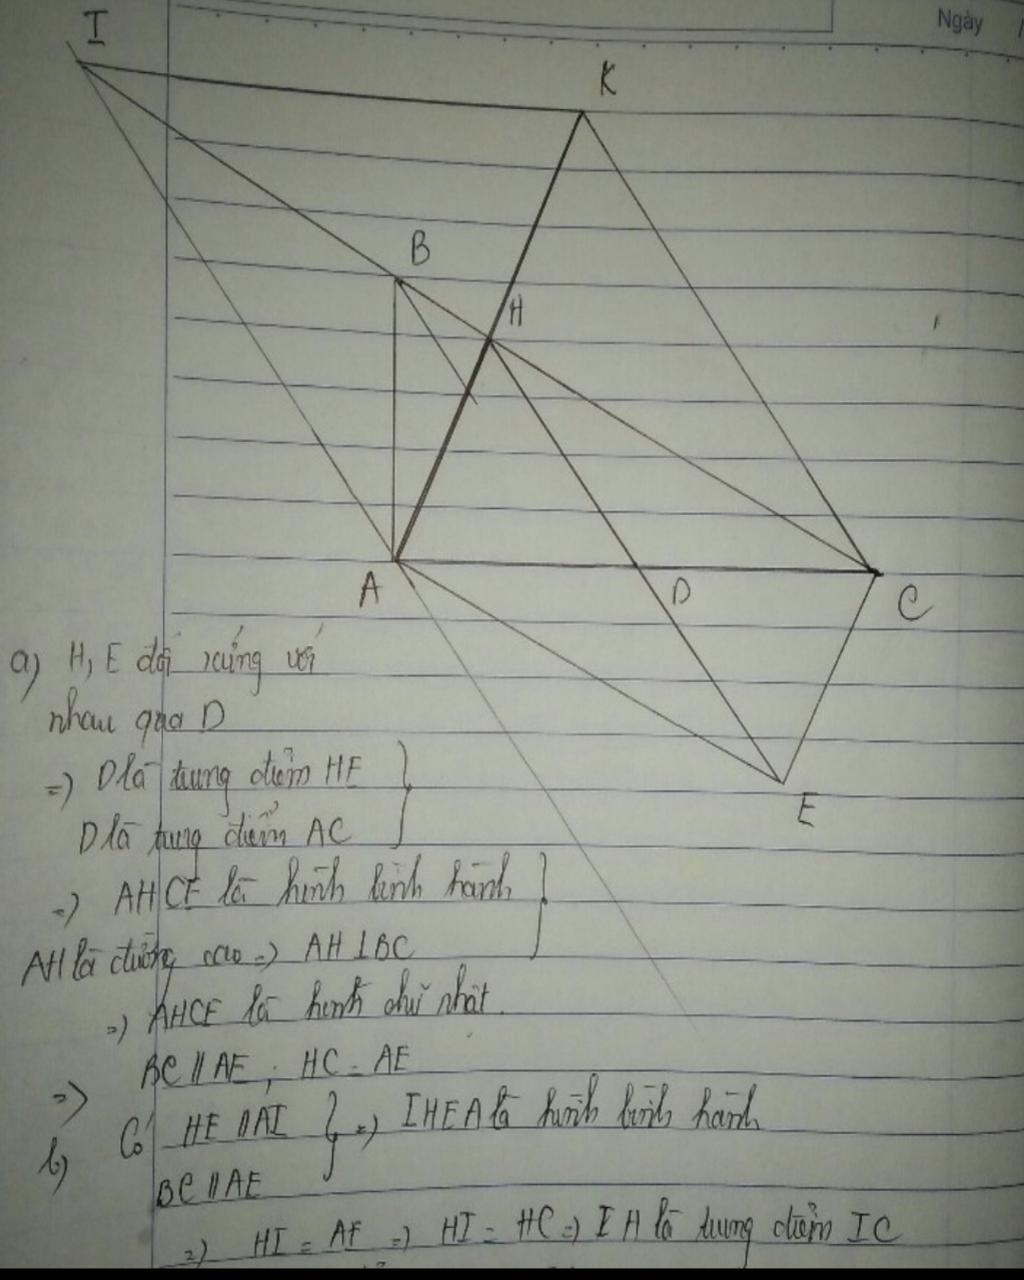 Ngày
I
K
B
H
A
D
C
E
a) H, E đối xứng với
nhau qua D
=) D là trung điểm HE
D là trung điểm AC
=) AHCE là hình bình hành
AH là đường cao =) AH ⊥ BC
=) AHCE là hình chữ nhật.
=) BC // AE ; HC = AE
b) Có HE // AI =) IHEA là hình bình hành
BC // AE
=) HI = AE =) HI = HC =) I H là trung điểm IC